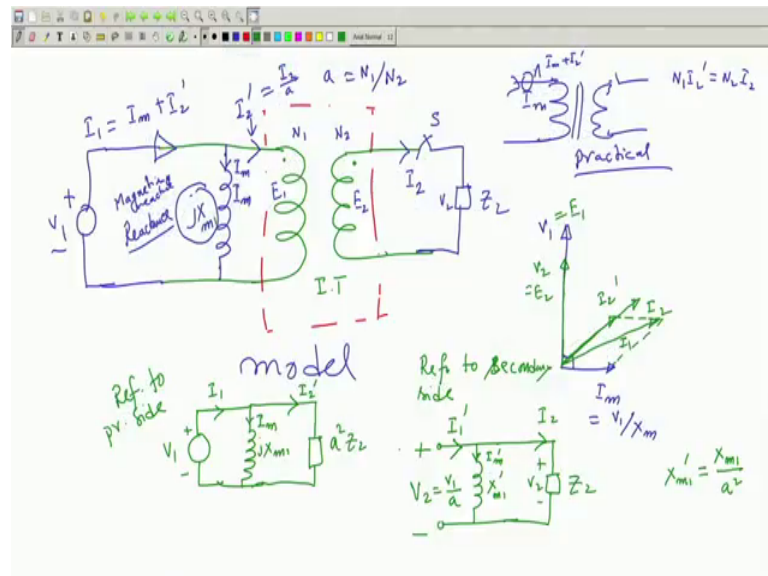 Arial Normal 12
I₂' = I₂/a  a = N₁/N₂
I₁ = Iₘ + I₂'
Iₘ + I₂'
N₁I₂' = N₂I₂
Iₘ
practical
N₁ N₂
S
Iₘ
Iₘ
I₂
+
V₁
~
Magnetising
Reactance
jXₘ₁
E₁
E₂
V₂
Z₂
I.T
= E₁
V₁
V₂
= E₂
I₂'
I₂
I₁
Iₘ
= V₁/Xₘ
model
Ref. to
pr. side
I₁
I₂'
+
V₁
-
Iₘ
jXₘ₁
a²Z₂
Ref. to secondary
side
I₁'
I₂
+
V₂ = V₁/a
-
Iₘ'
X'ₘ₁
+
V₂
-
Z₂
X'ₘ₁ = Xₘ₁/a²